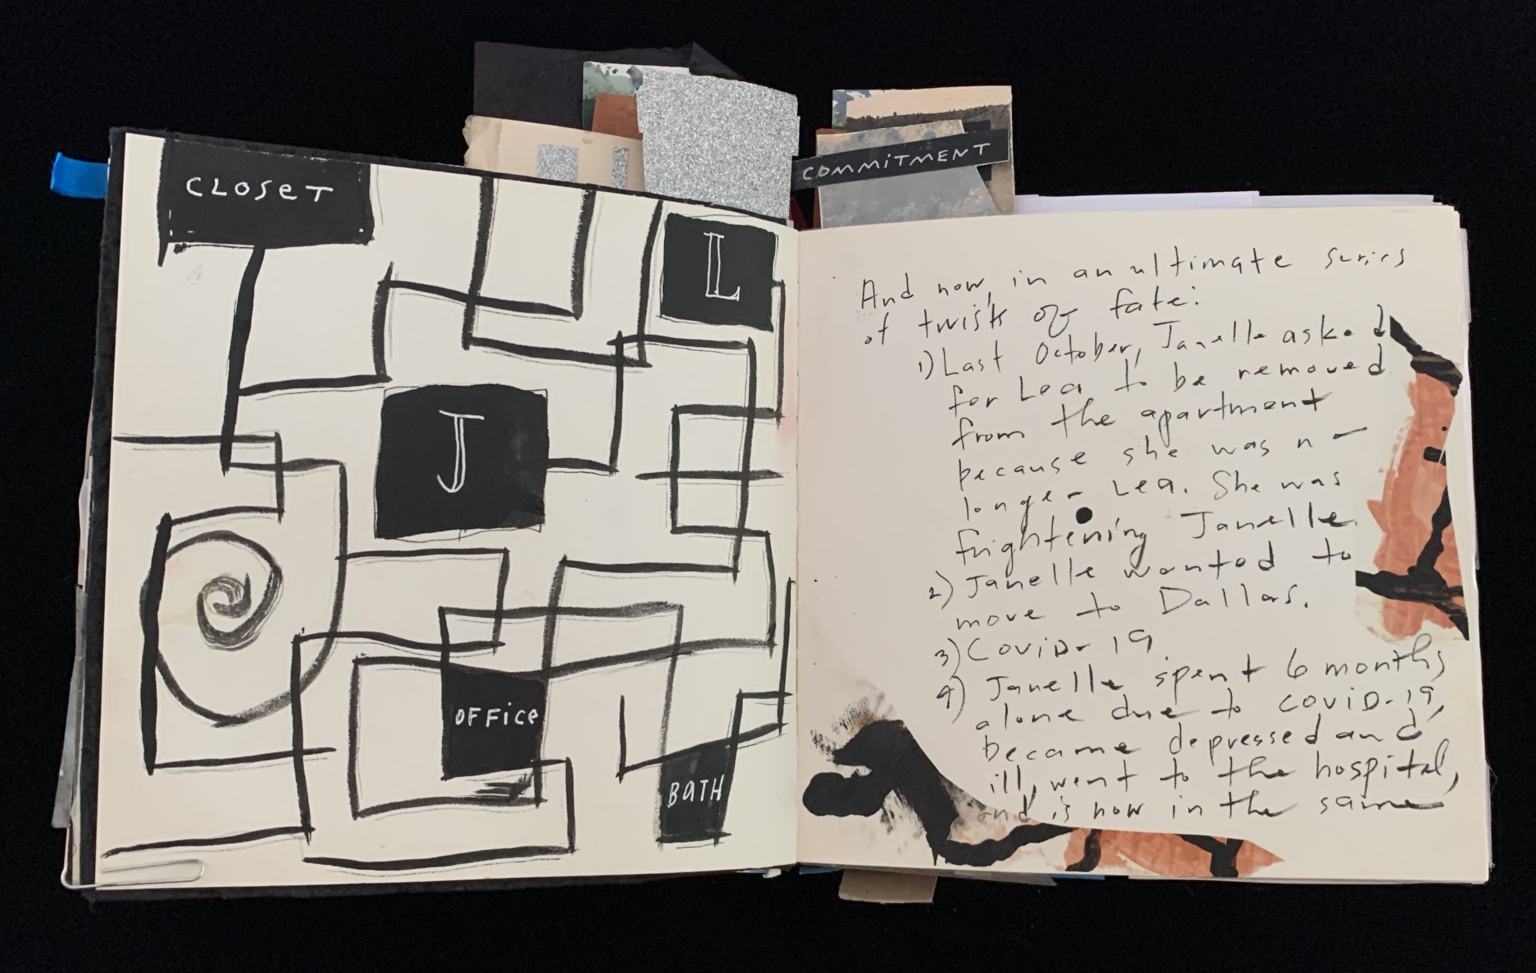 CLOSET
L
J
OFFice
BATH
COMMiTMENT
And now, in an ultimate series
of twists of fate:
1) Last October, Janelle asked
for Lea to be removed
from the apartment
because she was no
longer Lea. She was
frightening Janelle.
2) Janelle wanted to
move to Dallas.
3) Covid-19.
4) Janelle spent 6 months
alone due to covid-19,
became depressed and
ill, went to the hospital,
and is now in the same